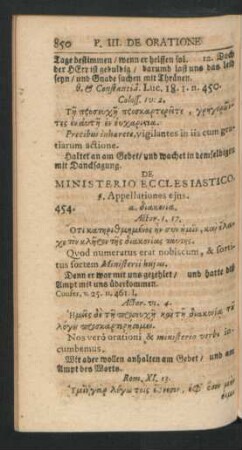 850 P. III. DE ORATIONE
Tage bestimmen / wenn er helffen sol. 12. Doch
der HErr ist gedultig / darumb last uns das leid
seyn / und Gnade suchen mit Thränen.
& Constantiâ. Luc. 18. 1. n. 450.
Coloss. IV. 2.
Τῇ προσευχῇ προσκαρτερεῖτε, γρηγοροῦν
τες ἐν αὐτῇ ἐν εὐχαριστίᾳ.
Precibus inhærete, vigilantes in iis cum gra-
tiarum actione.
Haltet an am Gebet / und wachet in demselbigen
mit Dancksagung.
DE
MINISTERIO ECCLESIASTICO.
Appellationes ejus.
454. a. διακονία.
Actor. 1. 17.
Ὅτι κατηριθμημένος ἦν σὺν ἡμῖν, καὶ ἔλα-
χε τὸν κλῆρον τῆς διακονίας ταύτης.
Quod numeratus erat nobiscum, & sorti-
tus sortem Ministerii hujus.
Denn er war mit uns gezehlet / und hatte das
Ampt mit uns überkommen.
Confer. v. 25. n. 461. l.
Actor. VI. 4.
Ἡμεῖς δὲ τῇ προσευχῇ καὶ τῇ διακονίᾳ τοῦ
λόγου προσκαρτερήσομεν.
Nos verò orationi & ministerio verbi in-
cumbemus.
Wir aber wollen anhalten am Gebet / und am
Ampt des Worts.
Rom. XI. 13.
Ὑμῖν γὰρ λέγω τοῖς ἔθνεσιν, ἐφ' ὅσον μέν